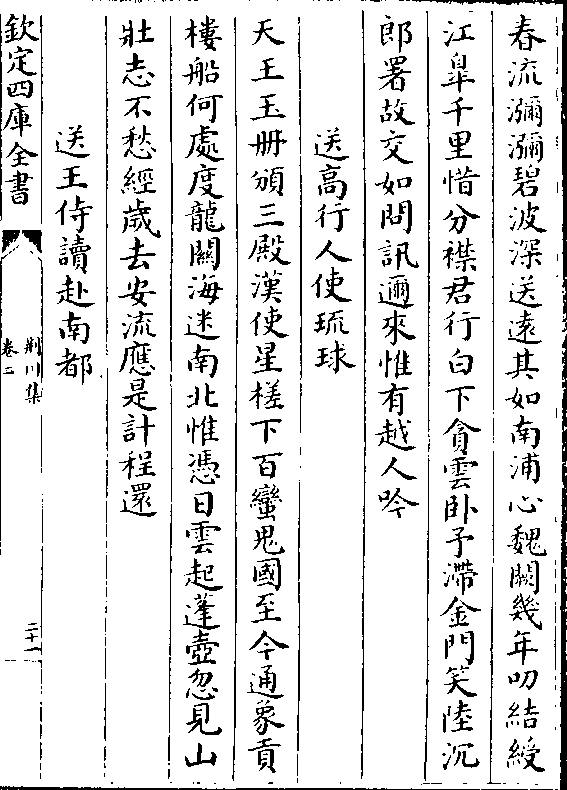 春流瀰瀰碧波深送遠其如南浦心魏闕幾年叨結綬
江臯千里惜分襟君行白下貪雲卧予滯金門笑陸沉
郎署故交如問訊邇來惟有越人吟
送高行人使琉球
天王玉册頒三殿漢使星槎下百蠻鬼國至今通象貢
樓船何處度龍關海迷南北惟憑日雲起蓬壺忽見山
壯志不愁經歲去安流應是計程還
送王侍讀赴南都
欽定四庫全書
荆川集
卷二
二十一